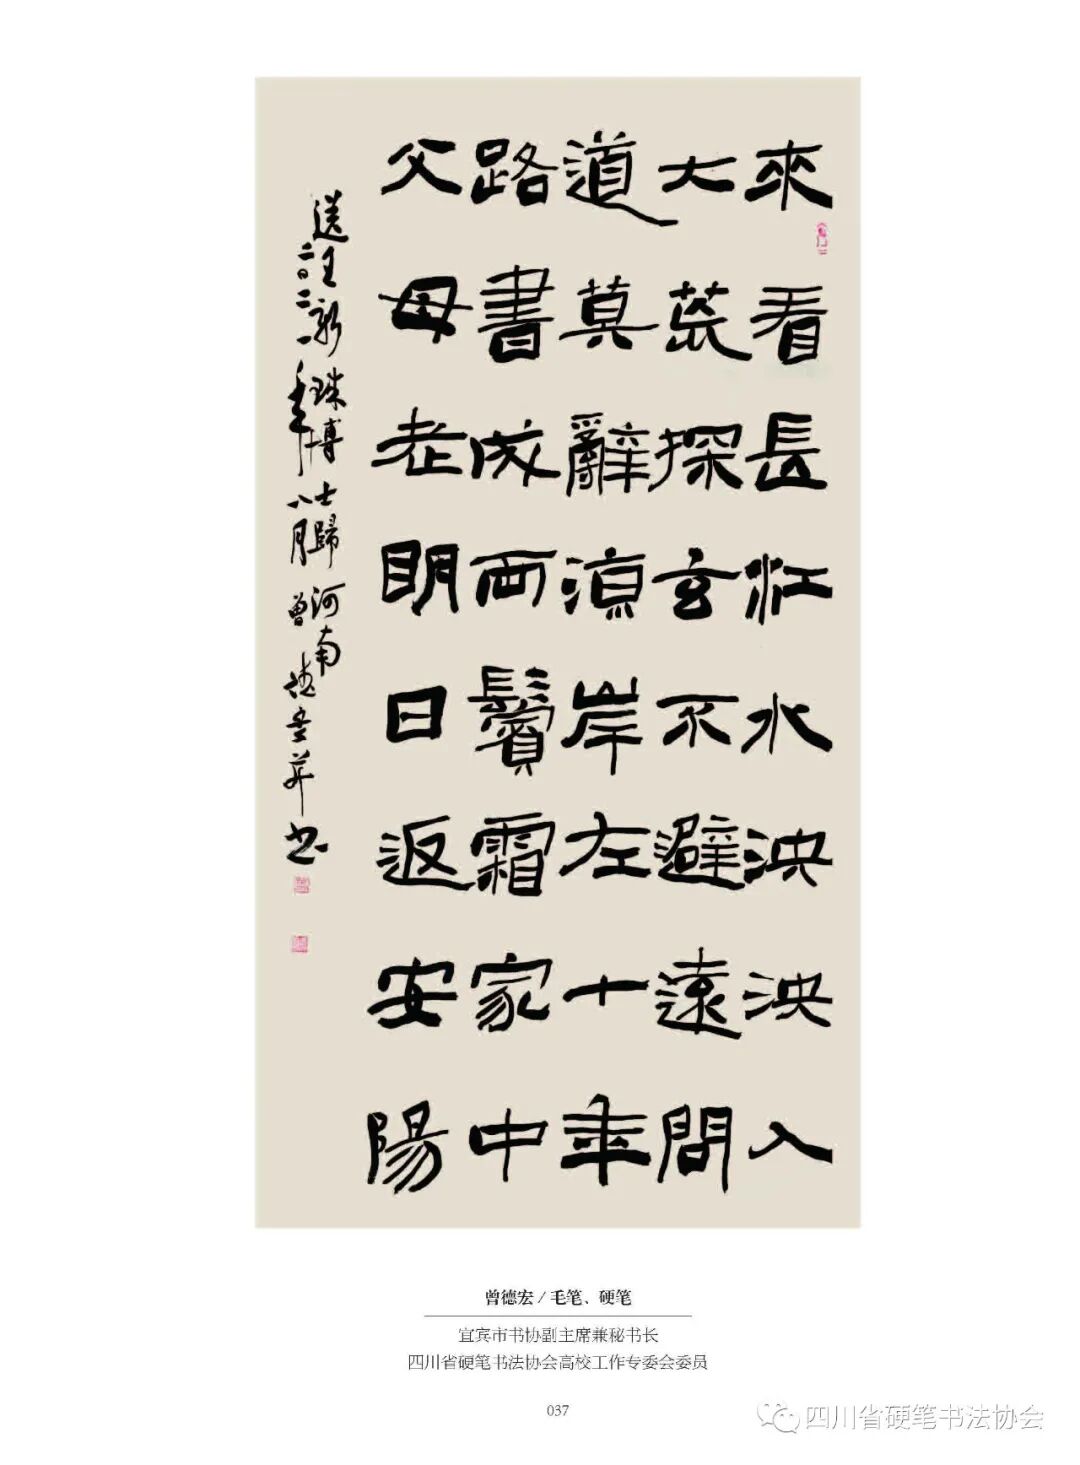 來看長江水泱泱入
大荒探玄不避遠問
道莫辭涼岸左十年
路書成兩鬢霜家中
父母老明日返安陽
送王新珠博士歸河南
二〇二一年八月曾德宏并书
曾德宏 / 毛笔、硬笔
宜宾市书协副主席兼秘书长
四川省硬笔书法协会高校工作专委会委员
037
四川省硬笔书法协会